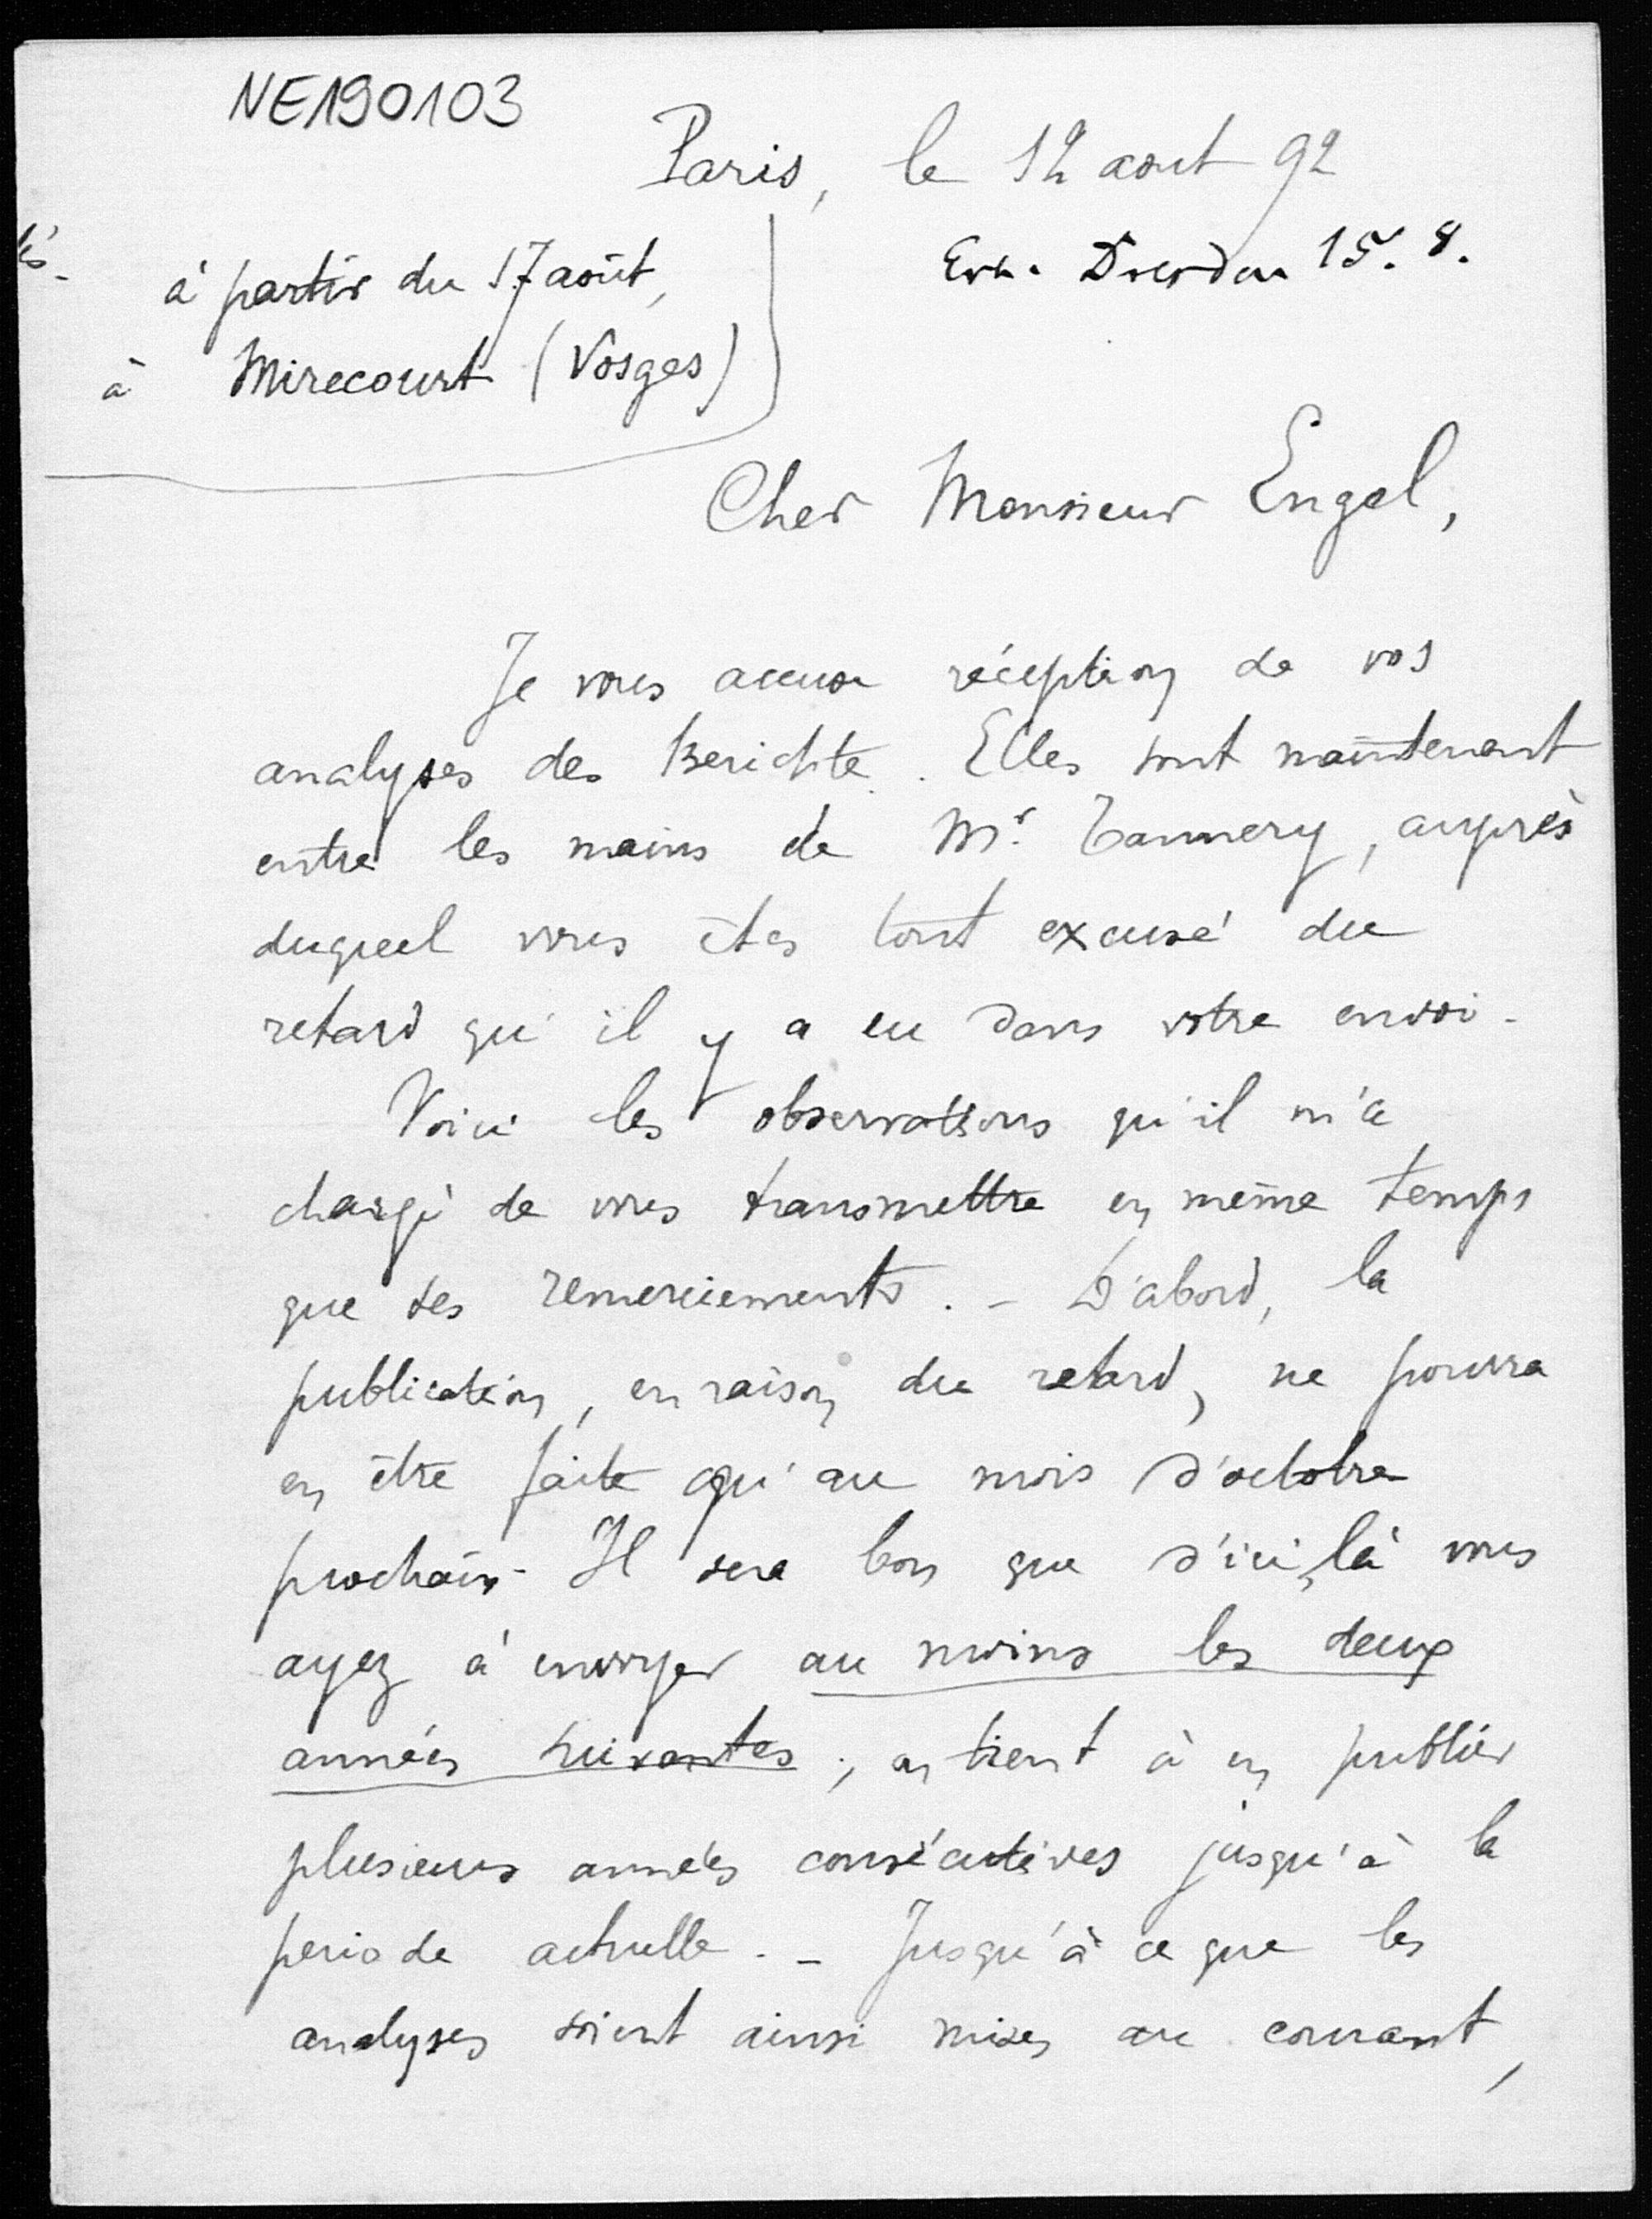 NE190103
Paris, le 12 aout 92
à partir du 17 août,
Dresden 15. 8.
à Mirecourt (Vosges)
Cher Monsieur Engel,
Je vous accuse réception de vos
analyses des Berichte. Elles sont maintenant
entre les mains de Mr. Tannery, auprès
duquel vous êtes tout excusé du
retard qu'il y a eu dans votre envoi.
Voici les observations qu'il m'a
chargé de vous transmettre en même temps
que ses remerciements. - D'abord, la
publication, en raison du retard, ne pourra
en être faite qu'au mois d'octobre
prochain. Il sera bon que d'ici là vous
ayez à envoyer au moins les deux
années suivantes; on tient à en publier
plusieurs années consécutives jusqu'à la
periode actuelle. - Jusqu'à ce que les
analyses soient ainsi mises au courant,